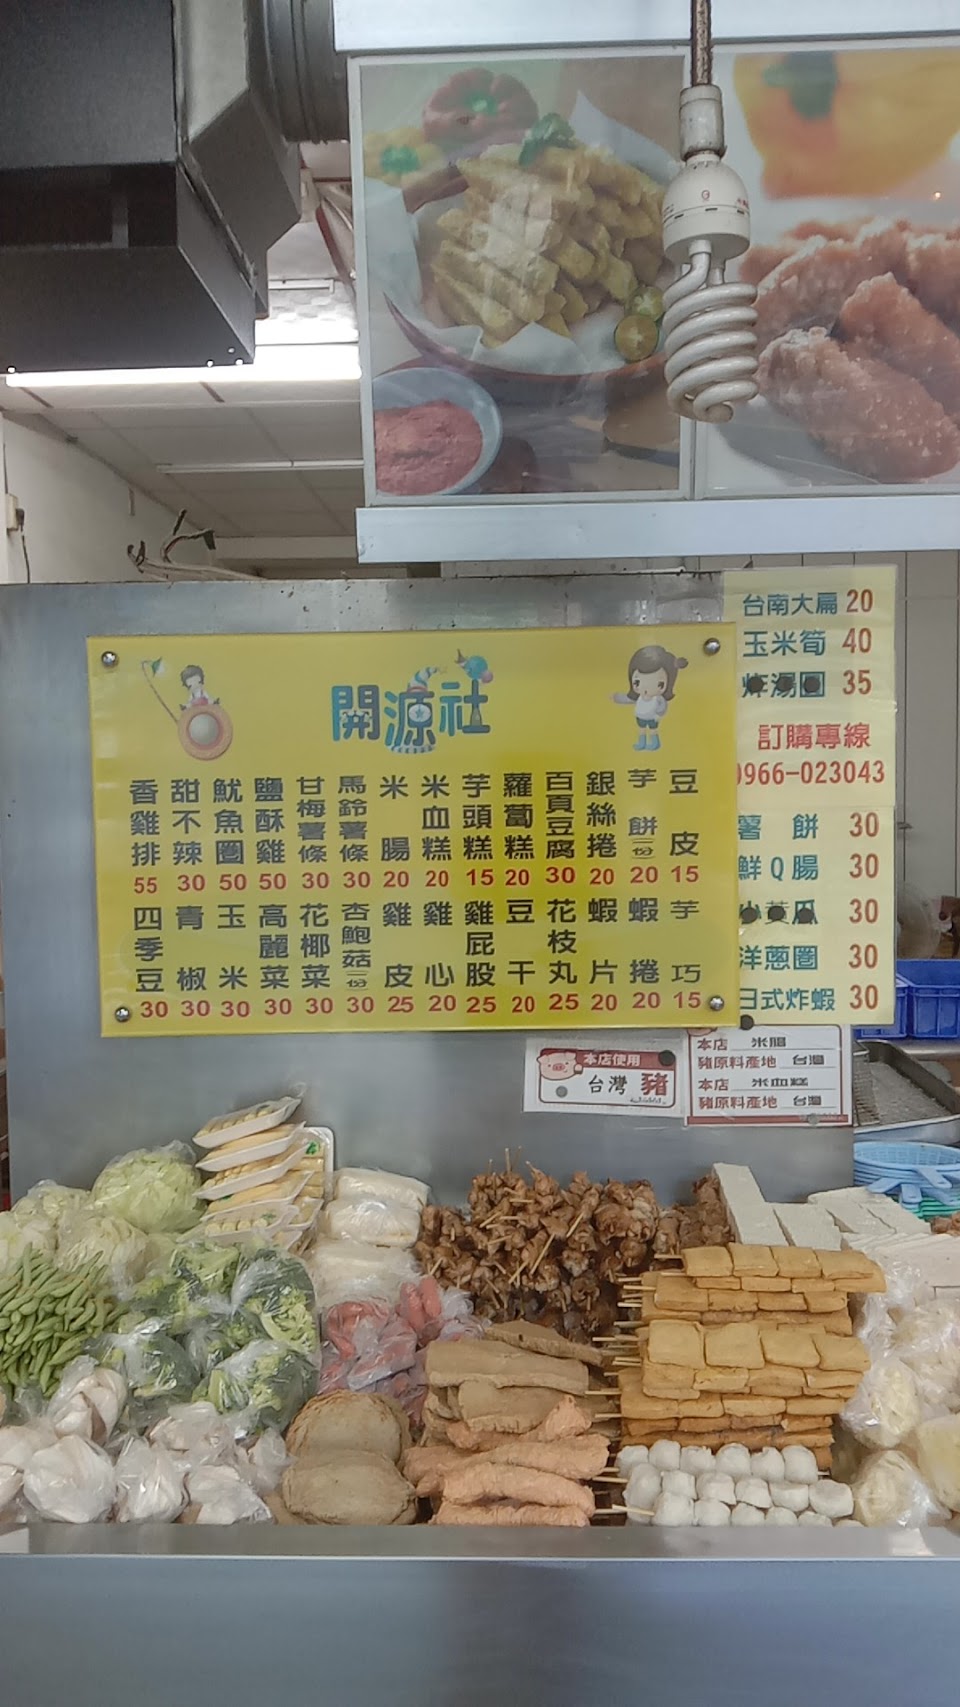 開源社
香雞排 55
甜不辣 30
魷魚圈 50
鹽酥雞 50
甘梅薯條 30
馬鈴薯條 30
米腸 20
米血糕 20
芋頭糕 15
蘿蔔糕 20
百頁豆腐 30
銀絲捲 20
芋餅(一份) 20
豆皮 15
四季豆 30
青椒 30
玉米 30
高麗菜 30
花椰菜 30
杏鮑菇一份 30
雞皮 25
雞心 20
雞屁股 25
豆干 20
花枝丸 25
蝦片 20
蝦捲 20
芋巧 15
台南大扁 20
玉米筍 40
炸湯圓 35
訂購專線
0966-023043
薯餅 30
鮮Q腸 30
小黃瓜 30
洋蔥圈 30
日式炸蝦 30
本店使用
台灣豬
本店 米腸
豬原料產地 台灣
本店 米血糕
豬原料產地 台灣